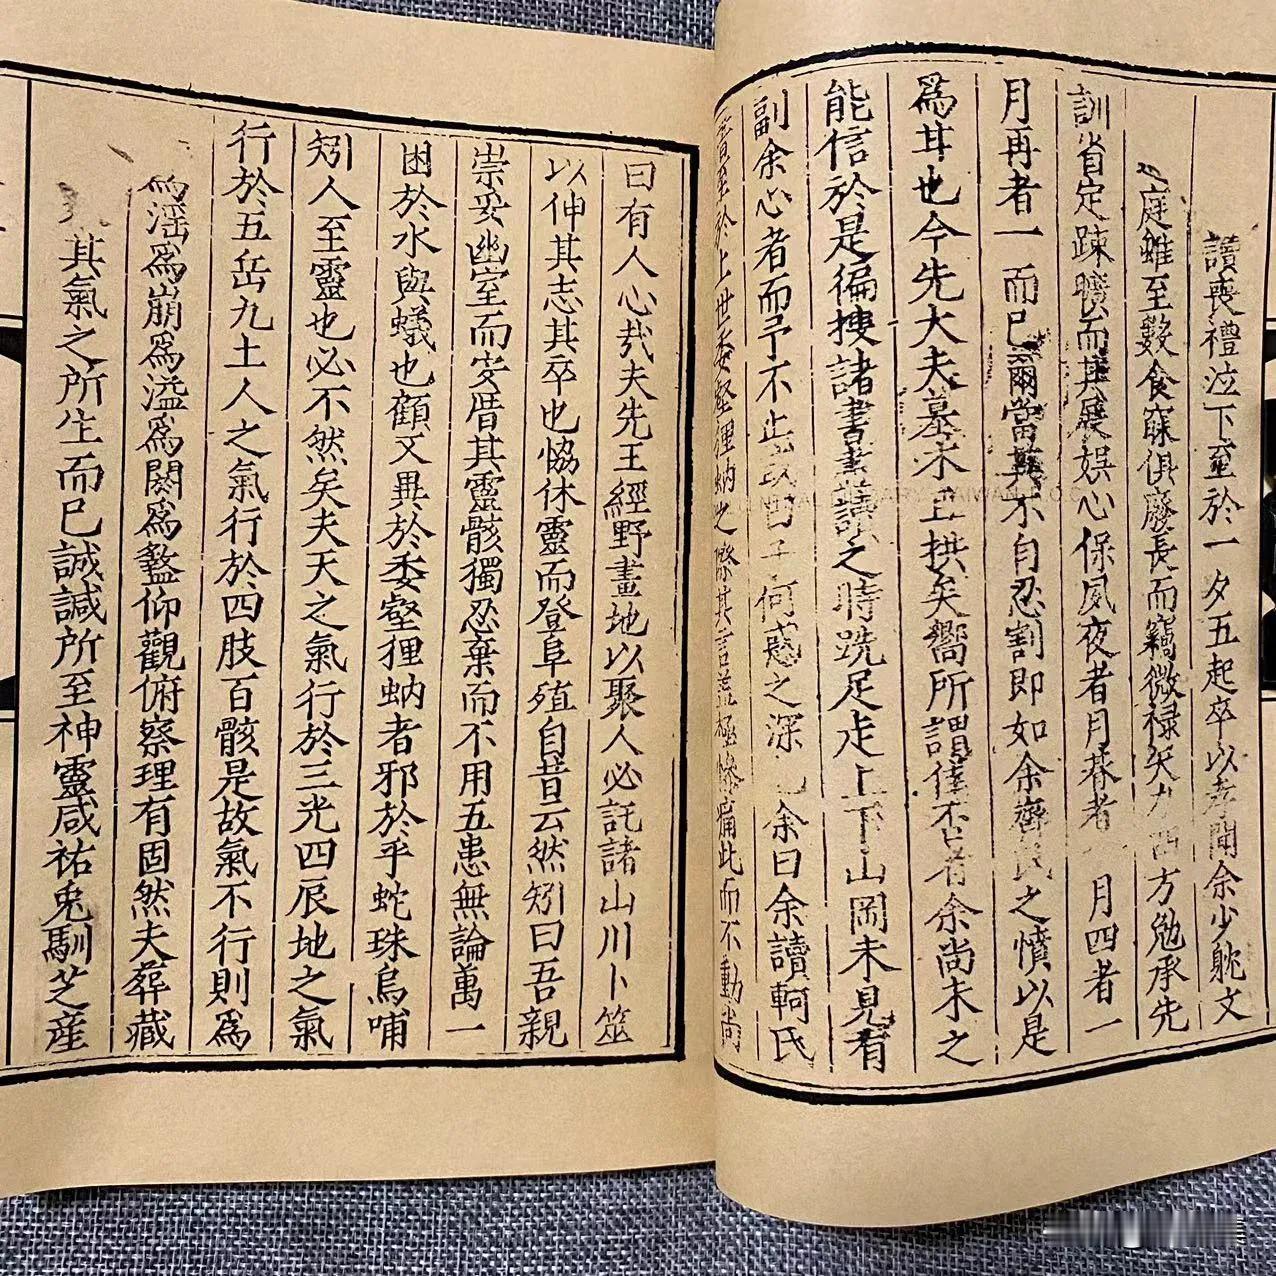 讀喪禮泣下至於一夕五起卒以孝聞余少躭文
庭雖至數食寐俱廢長而竊微祿矣方勉承先
訓省定踈曠而其屐娛心保夙夜者月暮者月四者一
月再者一而已爾當其不自忍割即如余齊民之憤以是
爲耳也今先大夫墓木且拱矣嚮所謂僅否者余尚未之
能信於是徧搜諸書畫講之時跣足走上下山岡未見有
副余心者而予不止以何感之深余曰余讀軻氏
書至於上世委壑狸蚋之際其言葢極慘痛此而不動尚
曰有人心㢤夫先王經野畫地以聚人必託諸山川卜筮
以伸其志其卒也恊休靈而登阜殖自昔云然矧曰吾親
崇妥幽室而安厝其靈骸獨忍棄而不用五患無論萬一
困於水與蟻也顧又異於委壑狸蚋者邪於乎蛇珠烏哺
矧人至靈也必不然矣夫天之氣行於三光四辰地之氣
行於五岳九土人之氣行於四肢百骸是故氣不行則爲
爲淫爲崩爲溢爲閼爲盭仰觀俯察理有固然夫葬藏
其氣之所生而已誠諴所至神靈咸祐兎馴芝産